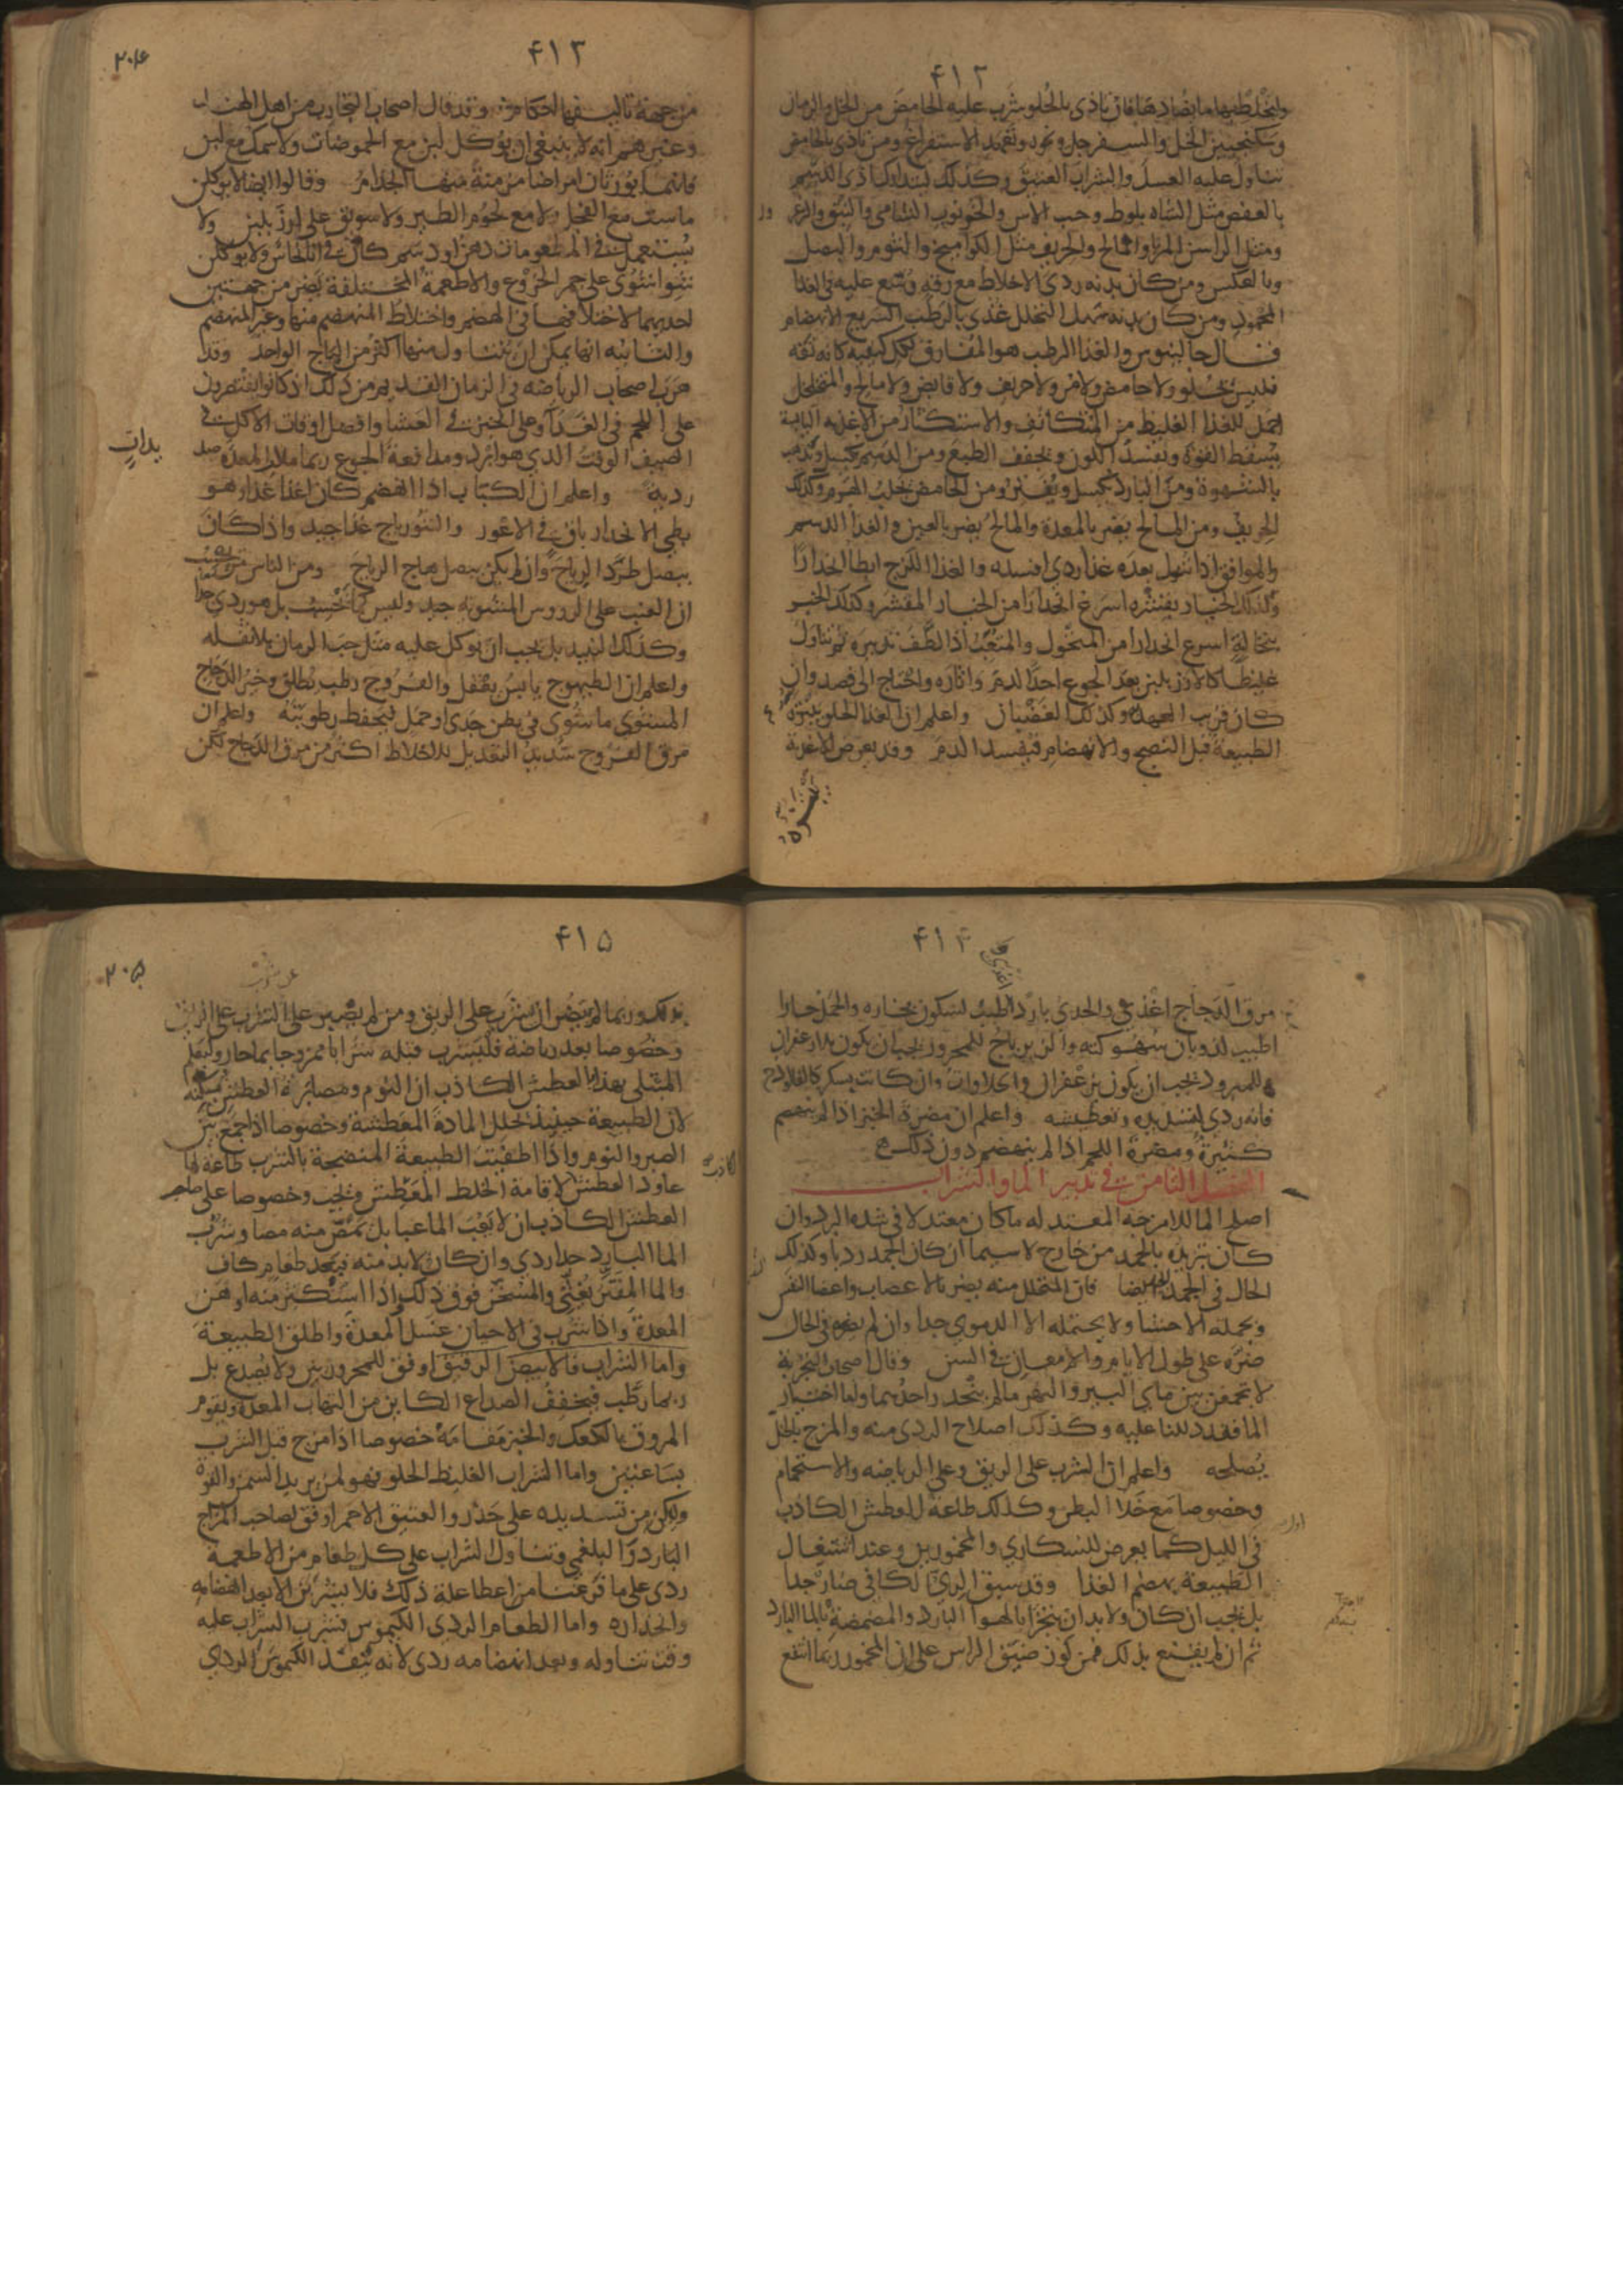 ۴۱۲
وليخلط بها ما يضادها فان تاذى بالحلو شرب عليه الحامض من الخل والرمان
وسكنجبين الخل والسفرجل ونحوه وتعهد الاستفراغ ومن تاذى بالحامض
تناول عليه العسل والشراب العتيق وكذلك ليتدارك اذى الدسم
بالعفص مثل الشاه بلوط وحب الاس والخرنوب الشامي والنبق والزعرور
ومثل الراسن المر والمالح والحريف مثل الكواميخ والثوم والبصل
وبالعكس ومن كان بدنه ردي الاخلاط مع رقة وسع عليه في الغذا
المحمود ومن كان بدنه سهل التحلل غذي بالرطب السريع الانهضام
قال جالينوس والغذا الرطب هو المفارق لكل كيفية كانه تفه
فليس بحلو ولا حامض ولا مر ولا حريف ولا قابض ولا مالح والمتخلخل
احمل للغذا الغليظ من المتكاثف والاستكثار من الاغذيه اليابسة
يسقط القوة ويفسد اللون ويجفف الطبع ومن الدسم يكسل ويذهب
بالشهوة ومن البارد يكسل ويفتر ومن الحامض يجلب الهرم وكذلك
الحريف ومن المالح يضر بالمعدة والمالح يضر بالعين والغذا الدسم
والموافق اذا تنوول بعده غذا ردي افسده والغذا اللزج ابطا انحدارا
ولذلك الخيار بقشره اسرع انحدارا من الخيار المقشر وكذلك الخبز
بنخالته اسرع انحدارا من المنخول والمتعب اذا لطف تدبيره ثم تناول
غليظا كالارز بلبن بعد الجوع احد الدم واثاره واحتاج الى فصد وان
كان قريب العهد به وكذلك الغضبان واعلم ان الغذا الحلو يبتزه
الطبيعة قبل النضج والانهضام فيفسد الدم وقد يعرض للاغذية
۴۱۳
۲۰۴
من جهة تاليفها احكام وقد قال اصحاب التجارب من اهل الهند
وغيرهم انه لا ينبغي ان يوكل لبن مع الحموضات ولا سمك مع لبن
فانهما يورثان امراضا مزمنة منها الجذام وقالوا ايضا لا يوكلن
ماست مع الفجل ولا مع لحوم الطير ولا سويق على ارز بلبن ولا
يستعمل في المطعومات دهن او دسم كان في انا نحاس ولا يوكلن
شوا شوي على جمر الخروع والاطعمة المختلفة يضر من جهتين
احديهما لاختلافها في الهضم واختلاط المنهضم منها وغير المنهضم
والثانيه انها يمكن ان يتناول منها اكثر من الباج الواحد وقد
هرب اصحاب الرياضه في الزمان القديم من ذلك اذ كانوا يقتصرون
على اللحم في الغدا وعلى الخبز في العشا وافضل اوقات الاكل في
الصيف الوقت الذي هو ابرد ومدافعة الجوع ربما ملا المعدة صديد
ردية واعلم ان الكباب اذا انهضم كان اغذا غذا وهو
بطي الانحدار باق في الاعور والشورباج غذا جيد واذا كان
ببصل طرد الرياح وان لم يكن ببصل هاج الرياح ومن الناس من يحسب
ان العنب على الرووس المشويه جيد وليس كما يحسب بل هو ردي جدا
وكذلك النبيذ بل يجب ان يوكل عليه مثل حب الرمان بلا ثفله
واعلم ان الطيهوج يابس يعقل والفروج رطب يطلق وخير الدجاج
المشوي ما شوي في بطن جدي او حمل فيحفظ رطوبته واعلم ان
مرق الفروج شديد التعديل للاخلاط اكثر من مرق الدجاج لكن
۴۱۴
مرق الدجاج اغذى والجدي باردا اطيب لسكون بخاره والحمل حارا
اطيب لذوبان سهوكته والزيرباج للمحرور يجب ان يكون بلا زعفران
وللمبرود يجب ان يكون بزعفران والحلاوات وان كانت بسكر كالفالوذج
فانه ردي لتسديده وتعطيشه واعلم ان مضرة الخبز اذا لم ينهضم
كثيرة ومضرة اللحم اذا لم ينهضم دون ذلك
الفصل الثامن في تدبير الما والشراب
اصلح الما للامزجه المعتدله ما كان معتدلا في شده البرد وان
كان تبريده بالجمد من خارج لا سيما ان كان الجمد رديا وكذلك
الحال في الجمد ايضا فان المتحلل منه يضر بالاعصاب واعضا النفس
وبجملة الاحشا ولا يحتمله الا الدموي جدا وان لم يضره في الحال
ضره على طول الايام والامعان في السن وقال اصحاب التجربة
لا تجمعن بين ماي البير والنهر مالم ينحدر احدهما واما اختيار
الما فقد دللنا عليه وكذلك اصلاح الردي منه والمزج بالخل
يصلحه واعلم ان الشرب على الريق وعلى الرياضه والاستحمام
وخصوصا مع خلا البطن وكذلك طاعة للعطش الكاذب
في الليل كما يعرض للسكارى والمخمورين وعند اشتغال
الطبيعة بهضم الغذا وقد سبق الري الكافي ضار جدا
بل يجب ان كان ولا بد ان يتجزا بالهوا البارد والمضمضة بالما البارد
ثم ان لم يقنع بذلك فمن كوز ضيق الراس على ان المخمور ربما انتفع
۴۱۵
۲۰۵
بذلك وربما لم يضر ان شرب على الريق ومن لم يصبر على الشرب على الريق
وخصوصا بعد رياضة فليشرب قبله شرابا ممزوجا بما حار وليعلم
المبتلى بهذا العطش الكاذب ان النوم ومصابرة العطش يسكنه
لان الطبيعة حينيذ تحلل المادة المعطشة وخصوصا اذا جمع بين
الصبر والنوم واذا اطفيت الطبيعة المنضجة بالشرب طاعة لها
عاود العطش لاقامة الخلط المعطش ويجب وخصوصا على صاحب
العطش الكاذب ان لا يعب الما عبا بل يمص منه مصا وشرب
الما البارد جدا ردي وان كان لا بد منه فبعد طعام كاف
والما المفتر يغثي والمسخن فوق ذلك اذا استكثر منه اوهن
المعدة واذا شرب في الاحيان غسل المعدة واطلق الطبيعة
واما الشراب فالابيض الرقيق اوفق للمحرورين ولا يصدع بل
ربما رطب فيخفف الصداع الكاين من التهاب المعدة ويقوم
المروق بالكعك والخبز مقامه خصوصا اذا مزج قبل الشرب
بساعتين واما الشراب الغليظ الحلو فهو لمن يريد السمن والقوة
وليكن من تسديده على حذر والعتيق الاحمر اوفق لصاحب المزاج
البارد البلغمي وتناول الشراب على كل طعام من الاطعمة
ردي على ما فرغنا من اعطا علة ذلك فلا يشربن الا بعد انهضامه
وانحداره واما الطعام الردي الكيموس فشرب الشراب عليه
وقت تناوله وبعد انهضامه ردي لانه ينفذ الكيموس الردي